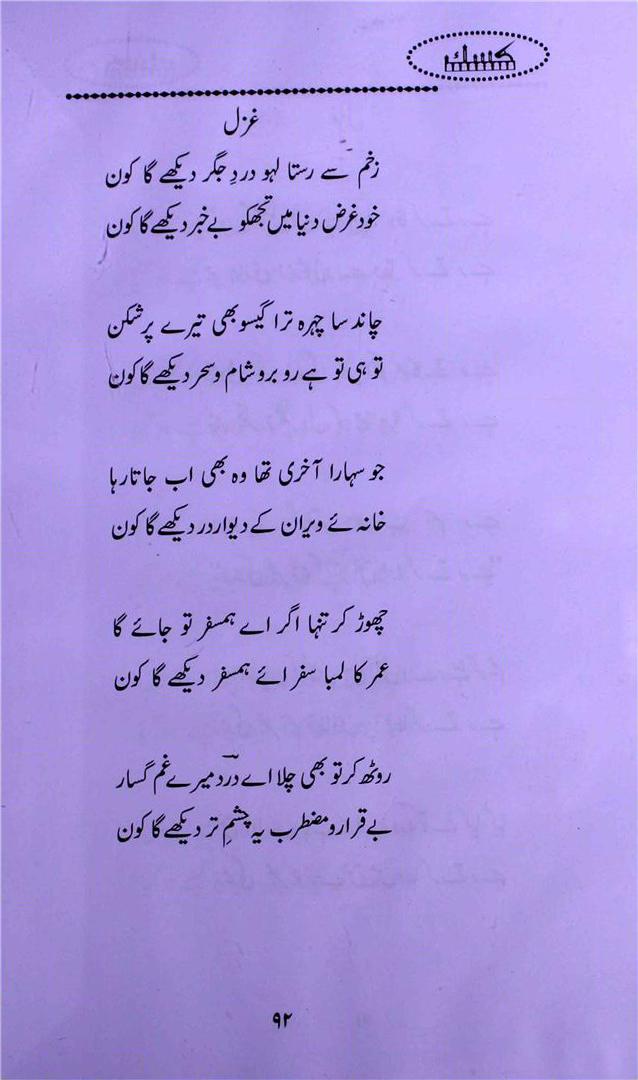 کسک
غزل
زخم سے رستا لہو دردِ جگر دیکھے گا کون
خود غرض دنیا میں تجھکو بے خبر دیکھے گا کون
چاند سا چہرہ ترا گیسو بھی تیرے پر شکن
تو ہی تو ہے رو برو شام و سحر دیکھے گا کون
جو سہارا آخری تھا وہ بھی اب جاتا رہا
خانہ ئے ویران کے دیوار در دیکھے گا کون
چھوڑ کر تنہا اگر اے ہمسفر تو جائے گا
عمر کا لمبا سفر ائے ہمسفر دیکھے گا کون
روٹھ کر تو بھی چلا اے دردؔ میرے غم گسار
بے قرار و مضطرب یہ چشمِ تر دیکھے گا کون
۹۲